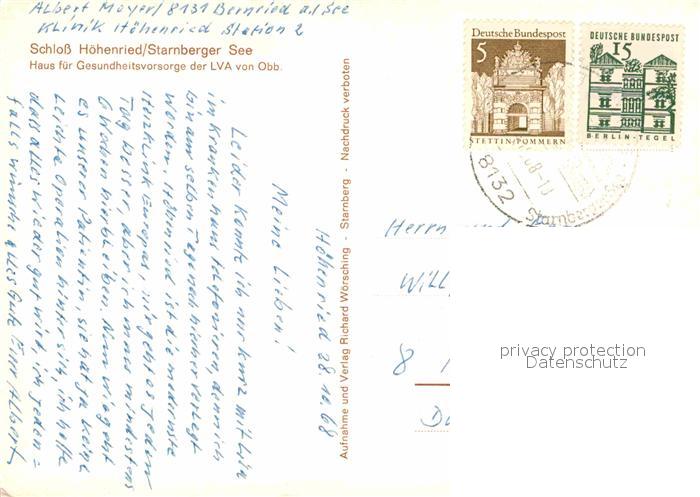 Albert Mayer/8131 Bernried a./See
Klinik Höhenried Station 2
Schloß Höhenried/Starnberger See
Haus für Gesundheitsvorsorge der LVA von Obb.
Höhenried 28.10.68
Meine Lieben!
Leider konnte ich nur kurz mit
im Krankenhaus telefonieren, denn ich
bin am selben Tag noch hierher verlegt
worden. Höhenried ist die modernste
Herzklinik Europas, mir geht es jeden
Tag besser, aber ich muss mindestens
6 Wochen hierbleiben. Nun wie geht
es unserer Patientin, sie hat ja keine
leichte Operation hinter sich, ich hoffe
dass alles wieder gut wird, ich jeden=
falls wünsche alles Gute Euer Albert
Aufnahme und Verlag Richard Wörsching - Starnberg - Nachdruck verboten
Deutsche Bundespost
5
STETTIN/POMMERN
DEUTSCHE BUNDESPOST
15
BERLIN-TEGEL
8132
Starnberger See
Herrn
Will
8
privacy protection
Datenschutz